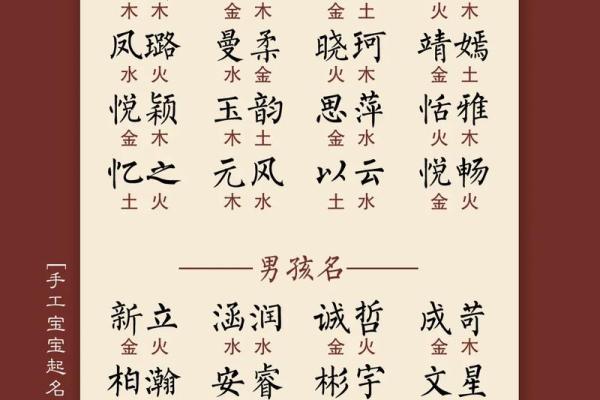 木 木 金 木 金 土 火 木
凤璐 曼柔 晓珂 靖嫣
水 火 水 金 火 木 金 土
悦颖 玉韵 思萍 恬雅
金 木 木 土 金 水 火 木
忆之 元风 以云 悦畅
土 火 木 水 土 水 金 火
男孩名
新立 涵润 诚哲 成苛
金 火 水 水 金 火 金 木
柏瀚 安睿 彬宇 文星
[手工宝宝起名